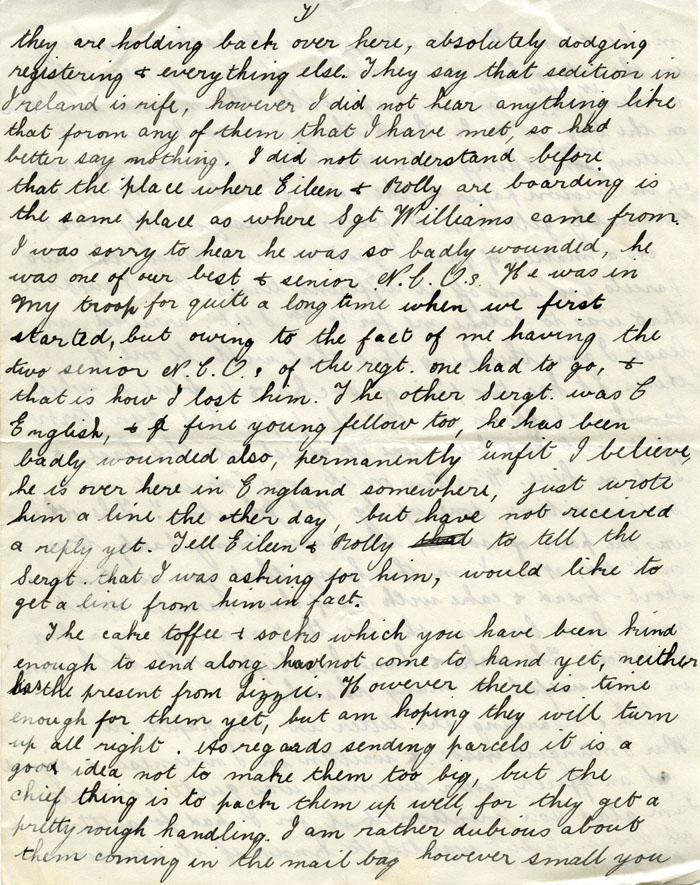 they are holding back over here, absolutely dodging
registering & everything else. They say that sedition in
Ireland is rife, however I did not hear anything like
that forom any of them that I have met, so had
better say nothing. I did not understand before
that the place where Eileen & Rolly are boarding is
the same place as where Sgt Williams came from.
I was sorry to hear he was so badly wounded, he
was one of our best & senior N.C.Os. He was in
my troop for quite a long time when we first
started, but owing to the fact of me having the
two senior N.C.O.s of the regt. one had to go, &
that is how I lost him. The other Sergt. was C
English, & A fine young fellow too, he has been
badly wounded also, permanently unfit I believe,
he is over here in England somewhere, just wrote
him a line the other day, but have not received
a reply yet. Tell Eileen & Rolly that to tell the
Sergt. that I was asking for him, would like to
get a line from him in fact.
The cake toffee & socks which you have been kind
enough to send along have not come to hand yet, neither
has the present from Lizzie. However there is time
enough for them yet, but am hoping they will turn
up all right. As regards sending parcels it is a
good idea not to make them too big, but the
chief thing is to pack them up well, for they get a
pretty rough handling. I am rather dubious about
them coming in the mail bag however small you